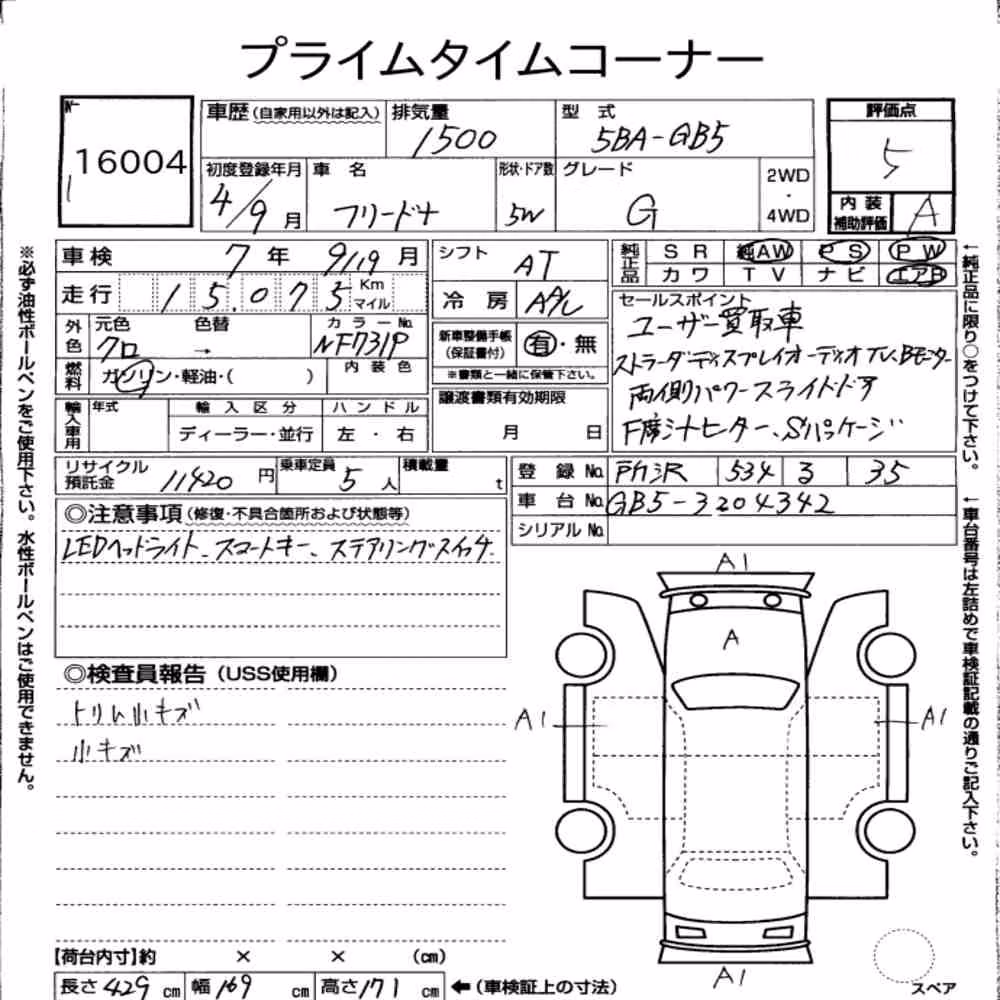 プライムタイムコーナー
№
16004
1
車歴(自家用以外は記入)
排気量
1500
型 式
5BA-GB5
評価点
5
初度登録年月
4/9月
車 名
フリード+
形状・ドア数
5W
グレード
G
2WD
・
4WD
内装
補助評価
A
車検 7年 9/19月
走行 15.073 Km マイル
外色 元色 クロ 色替 → カラーNo. NF731P
燃料 ガソリン・軽油・( )
内装色
輸入車用 年式 輸入区分 ディーラー・並行 ハンドル 左・右
シフト AT
冷房 AAC
新車整備手帳
(保証書付)
有・無
※書類と一緒に保管下さい。
譲渡書類有効期限
月 日
純正品 SR 純AW PS PW
カワ TV ナビ エアB
セールスポイント
ユーザー買取車
ストラーダディスプレイオーディオ TV、Bモニター
両側パワースライドドア
F席シートヒーター、Sパッケージ
リサイクル
預託金
11420円
乗車定員 5人
積載量 t
登録No. 所沢 534 る 35
車台No. GB5-3204342
シリアルNo.
◎注意事項(修復・不具合箇所および状態等)
LEDヘッドライト、スマートキー、ステアリングスイッチ
◎検査員報告(USS使用欄)
トリム小キズ
小キズ
A1
A
A1
A1
A1
【荷台内寸】約 × × (cm)
長さ429cm 幅169cm 高さ171cm ←(車検証上の寸法)
スペア
※必ず油性ボールペンをご使用下さい。水性ボールペンはご使用できません。
←純正品に限り○をつけて下さい。
←車台番号は左詰めで車検証記載の通りご記入下さい。